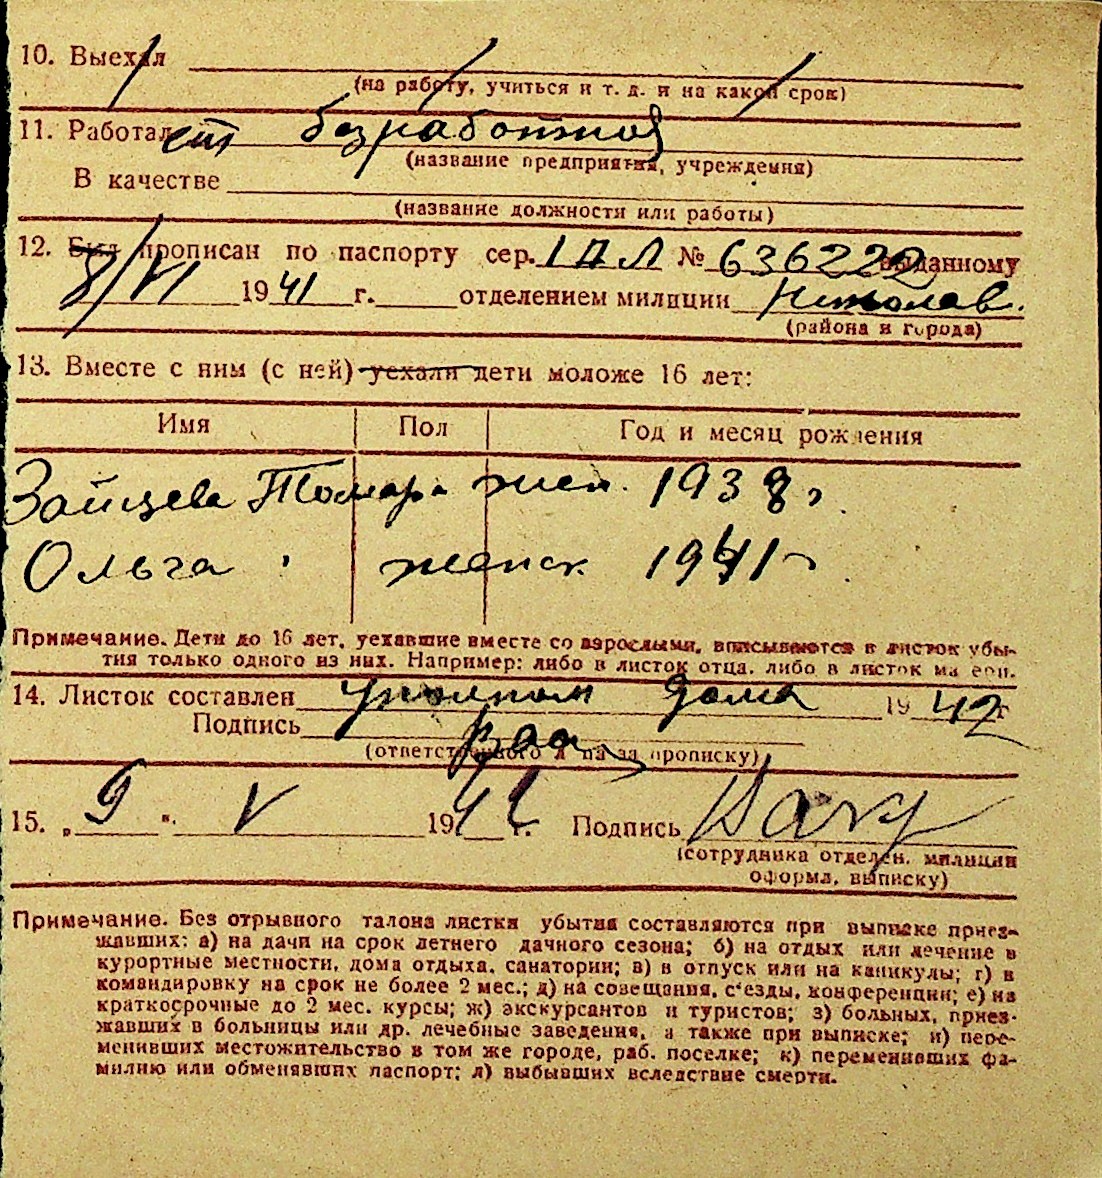 10. Выехал
(на работу, учиться и т. д. и на какой срок)
11. Работал безработной
(название предприятия, учреждения)
В качестве
(название должности или работы)
12. Был прописан по паспорту сер. № 636222 выданному
8/VI 1941 г. отделением милиции Николаев.
(района и города)
13. Вместе с ним (с ней) уехали дети моложе 16 лет:
Имя Пол Год и месяц рождения
Зайцева Тамара жен. 1938 г
Ольга женск 1941 г
Примечание. Дети до 16 лет, уехавшие вместе со взрослыми, вписываются в листок убы-
тия только одного из них. Например: либо в листок отца, либо в листок матери.
14. Листок составлен дома 1942 г
Подпись
(ответственного л на за прописку)
15. „ 9 ". V 194 г. Подпись
(сотрудника отделен. милиции
оформл. выписку)
Примечание. Без отрывного талона листки убытия составляются при выписке приез-
жавших: а) на дачи на срок летнего дачного сезона; б) на отдых или лечение в
курортные местности, дома отдыха, санатории; в) в отпуск или на каникулы; г) в
командировку на срок не более 2 мес.; д) на совещания, с‘езды, конференции; е) на
краткосрочные до 2 мес. курсы; ж) экскурсантов и туристов; з) больных, приез-
жавших в больницы или др. лечебные заведения, а также при выписке; и) пере-
менивших местожительство в том же городе, раб. поселке; к) переменивших фа-
милию или обменявших паспорт; л) выбывших вследствие смерти.